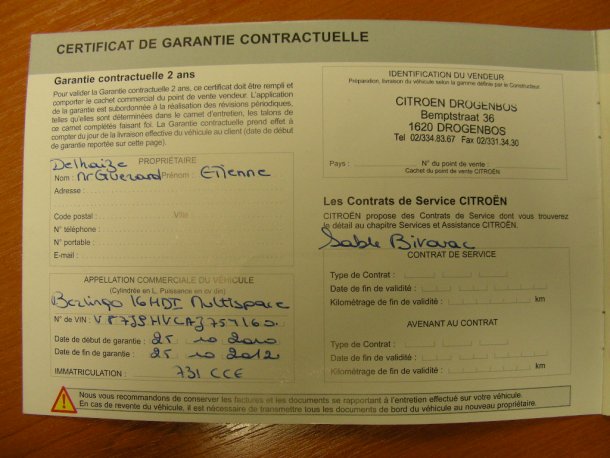 CERTIFICAT DE GARANTIE CONTRACTUELLE
Garantie contractuelle 2 ans
Pour valider la Garantie contractuelle 2 ans, ce certificat doit être rempli et
comporter le cachet commercial du point de vente vendeur. L'application
de la garantie est subordonnée à la réalisation des révisions périodiques,
telles qu'elles sont déterminées dans le carnet d'entretien, les talons de
ce carnet complétés faisant foi. La Garantie contractuelle prend effet à
compter du jour de la livraison effective du véhicule au client (date de début
de garantie reportée sur cette page).
Delhaize PROPRIÉTAIRE
Nom : Mr Guerard Prénom : Etienne
Adresse :
Code postal : Ville
N° téléphone :
N° portable :
E-mail :
APPELLATION COMMERCIALE DU VÉHICULE
(Cylindrée en L, Puissance en cv din)
Berlingo 16HDI Multispace
N° de VIN :
Date de début de garantie : 25 10 2010
Date de fin de garantie : 25 10 2012
IMMATRICULATION : 731 CCE
IDENTIFICATION DU VENDEUR
Préparation, livraison du véhicule selon la gamme définie par le Constructeur.
CITROEN DROGENBOS
Bemptstraat 36
1620 DROGENBOS
Tel 02/334.83.67 Fax 02/331.34.30
Pays : N° du point de vente :
Cachet du point de vente CITROËN
Les Contrats de Service CITROËN
CITROËN propose des Contrats de Service dont vous trouverez
le détail au chapitre Services et Assistance CITROËN.
Sable Bivouac
CONTRAT DE SERVICE
Type de Contrat :
Date de fin de validité :
Kilométrage de fin de validité : km
AVENANT AU CONTRAT
Type de Contrat :
Date de fin de validité :
Kilométrage de fin de validité : km
Nous vous recommandons de conserver les factures et les documents se rapportant à l'entretien effectué sur votre véhicule.
En cas de revente du véhicule, il est nécessaire de transmettre tous les documents de bord du véhicule au nouveau propriétaire.